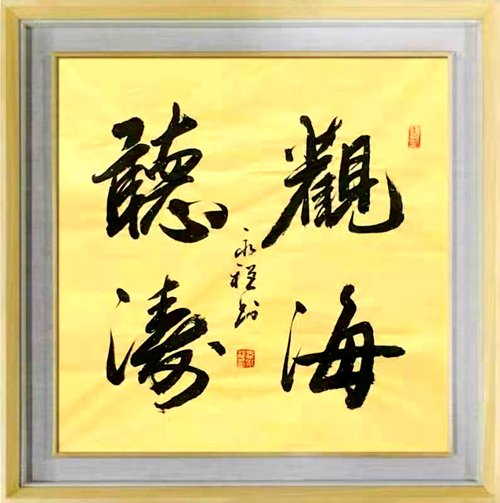 觀海
聽濤
永程书